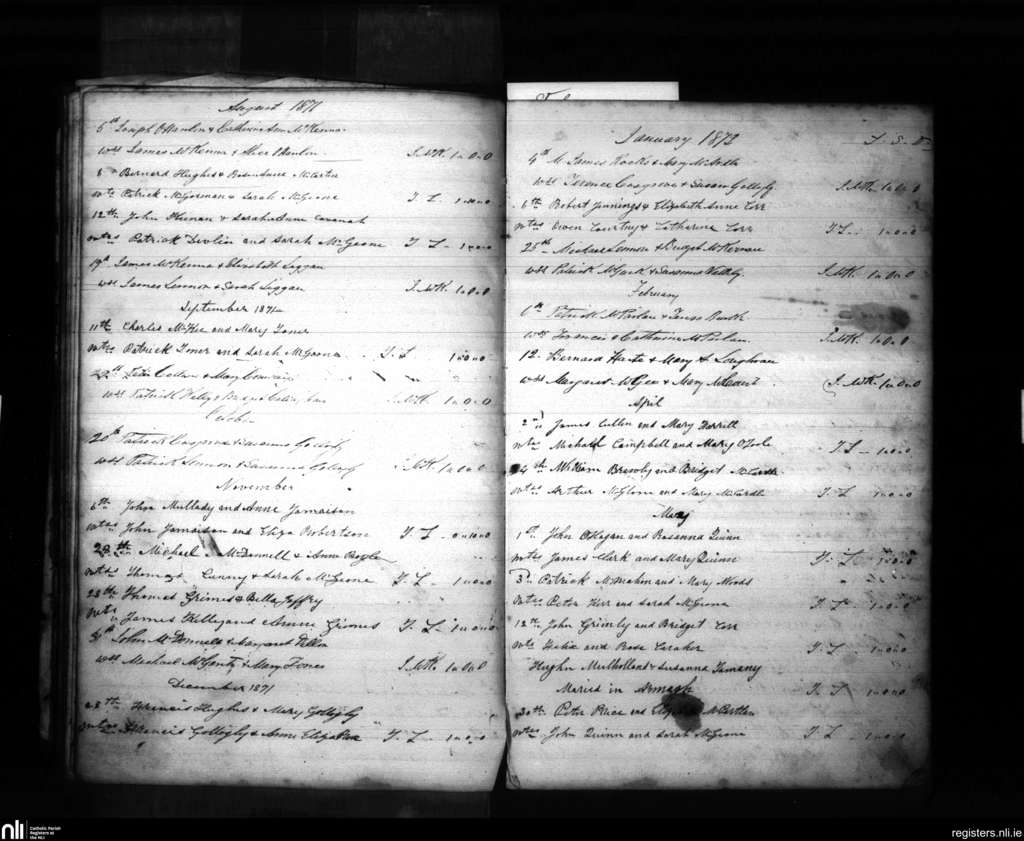 August 1871
6th Joseph O'Hanlon & Catherine Ann McKenna
wss James McKenna & Alice Hanlon J. McK. 1 " 0 " 0
Bernard Hughes & Rose Anne McCarter
wtss Patrick McGorman & Sarah McGeone T. L. 1 " 0 " 0
12th John Heenan & Sarah Anne Cavanah
wtss Patrick Devlin and Sarah McGeone T. L - 1 " 0 " 0
19th James McKenna & Elizabeth Leggan
wss James Lennon & Sarah Leggan J. McK. 1 " 0 " 0
September 1871
11th Charles McKee and Mary Toner
wtss Patrick Toner and Sarah McGeone T. L 1 " 0 " 0
& Mary
wss Patrick Kelly & J. McK. 1 " 0 " 0
October
20th Patrick Cosgrove & Susanna Gollogly
wss Patrick Lennon & Susanna J. McK. 1 " 0 " 0
November
6th John Mullady and Anne Jamaison
wtss John Jamaison and Eliza Robertson T. L - 0 " 10 " 0
28th Michael McDonnell & Anne Boyle
wtss Thomas Cunny & Sarah McGeone T. L - 1 " 0 " 0
28th Thomas Grimes & Bella Jeffry
wtss James Killey and Anne Grimes T. L - 1 " 0 " 0
30th John McDonnell & Margaret Dillon
wss Michael McGenty & Mary Jones J. McK. 1 " 0 " 0
December 1871
28th Francis Hughes & Mary Gollogly
wtss Francis Gollogly & Anne Eliza T. L - 1 " 0 " 0
January 1872 L. S. D
4th James Rocks & Mary
wss Terence Cosgrove & Susan Gollogly J. McK. 1 " 0 " 0
6th Robert Jennings & Elizabeth Anne Corr
wtss Owen Courtney & Catharine Corr T. L - 1 " 0 " 0
25th Michael Lennon & Bridget McKernan
wss Patrick McGurk & Susanna Kelly J. McK. 1 " 0 " 0
February
6th Patrick McParlan & Rourk
wss Francis & Catherine McParlan J. McK. 1 " 0 " 0
12. Bernard Harte & Mary A. Loughran
wss Margaret McGee & Mary J. McK. 1 " 0 " 0
April
2nd James Cullen and Mary Farrell
wtss Michael Campbell and Mary O'Toole T. L - 1 " 0 " 0
4th William Brawley and Bridget McCardle
wtss Arthur McGlone and Mary McCardle T. L - 1 " 0 " 0
May
1st John O'Hagan and Rosanna Quinn
wtss James Clark and Mary Quinn T. L - 1 " 0 " 0
3. Patrick McMahon and Mary Woods
wtss Peter Kerr and Sarah McGeone T. L - 1 " 0 " 0
12th John Grimly and Bridget Corr
wtss Felix and Rose Caraher T. L - 1 " 0 " 0
Hughn Mulholland & Susanna Tamany
Maried in Armagh T. L - 1 " 0 " 0
30th Peter Rice and McPartlan
wtss John Quinn and Sarah McGeone T. L - 1 " 0 " 0
nli
Catholic Parish
Registers at
the NLI
registers.nli.ie